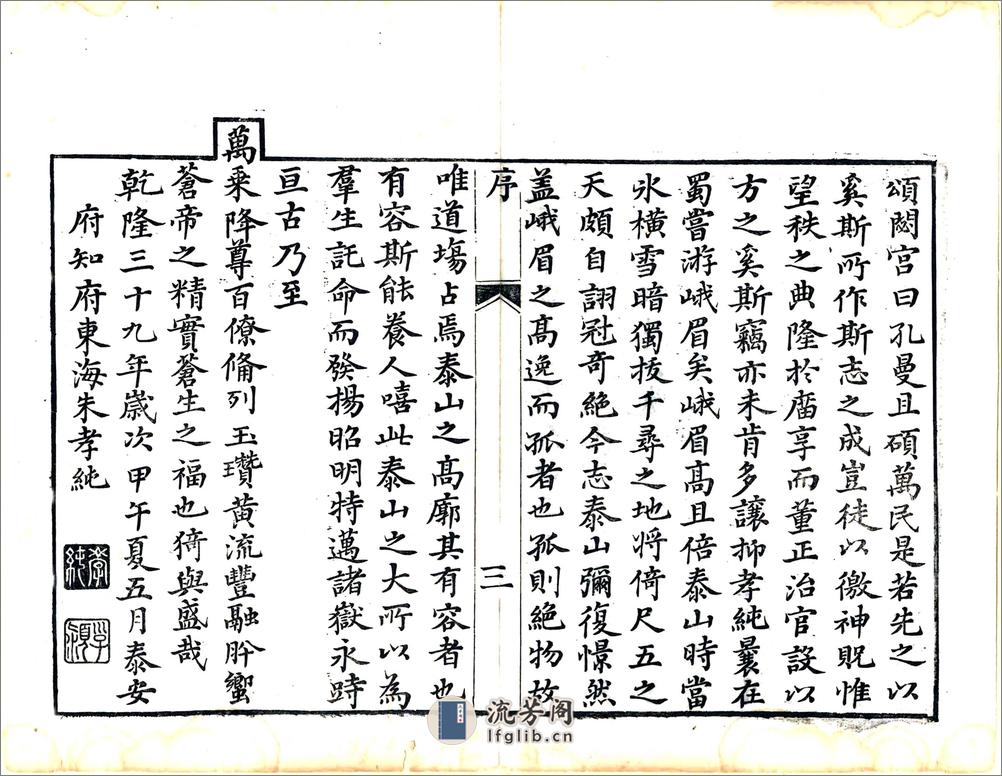 頌閟宮曰孔曼且碩萬民是若先之以
奚斯所作斯志之成豈徒以徼神貺惟
望秩之典隆於廟享而董正治官設以
方之奚斯竊亦未肯多讓抑孝純曩在
蜀嘗游峨眉矣峨眉高且倍泰山時當
氷橫雪暗獨拔千尋之地將倚尺五之
天頗自詡冠奇絕今志泰山彌復憬然
盖峨眉之高逸而孤者也孤則絕物故
序
三
唯道塲占焉泰山之高廓其有容者也
有容斯能養人嘻此泰山之大所以為
羣生託命而發揚昭明特邁諸嶽永跱
亘古乃至
萬乘降尊百僚備列玉瓚黃流豐融肸蠁
蒼帝之精實蒼生之福也猗與盛哉
乾隆三十九年歲次甲午夏五月泰安
府知府東海朱孝純
孝純
流芳阁
lfglib.cn